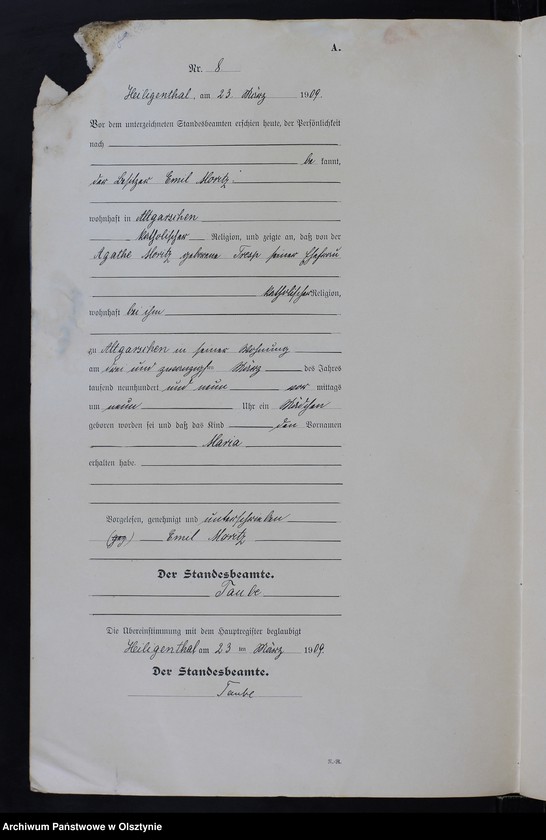 A.
Nr. 8
Heiligenthal, am 23. März 1909.
Vor dem unterzeichneten Standesbeamten erschien heute, der Persönlichkeit
nach
be kannt,
der Besitzer Emil Moritz
wohnhaft in Altgarschen
katholischer Religion, und zeigte an, daß von der
Agathe Moritz geborene Tresp seiner Ehefrau
katholischer Religion,
wohnhaft bei ihm
zu Altgarschen in seiner Wohnung
am drei und zwanzigsten März des Jahres
tausend neunhundert und neun vor mittags
um neun Uhr ein Mädchen
geboren worden sei und daß das Kind den Vornamen
Maria
erhalten habe.
Vorgelesen, genehmigt und unterschrieben
(gez) Emil Moritz
Der Standesbeamte.
Taube
Die Übereinstimmung mit dem Hauptregister beglaubigt
Heiligenthal am 23 ten März 1909.
Der Standesbeamte.
Taube
Archiwum Państwowe w Olsztynie